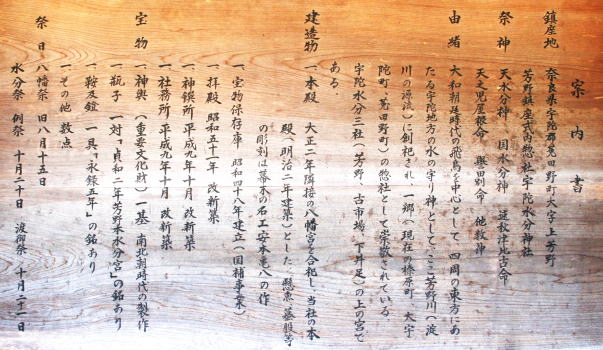 案内書
鎮座地 奈良県宇陀郡菟田野町大字上芳野
芳野鎮座式内惣社宇陀水分神社
祭神 天水分神 国水分神 速秋津比古命
天之児屋根命 誉田別命 他数神
由緒 大和朝廷時代の飛鳥を中心として、四岡の東方にあ
たる宇陀地方の水の守り神として、ここ芳野川(淀
川の源流)に創祀され、一郷(現在の榛原町、大宇
陀町、菟田野町)の惣社として崇敬されている。
宇陀水分三社(芳野、古市場、下井足)の上の宮で
ある。
建造物 一、本殿 大正二年隣接の八幡宮を合祀し、当社の本
殿(明治三年建築)とした。懸魚、蟇股等
の彫刻は幕末の石工安本亀八の作
一、宝物保存庫 昭和四十八年建立(国補事業)
一、拝殿 昭和五十一年 改新築
一、神饌所 平成九年十月 改新築
一、社務所 平成九年十月 改新築
宝物 一、神輿(重要文化財)一基 南北朝時代の製作
一、瓶子 一対「貞和二年芳野本水分宮」の銘あり
一、鞍及鐙 一具「永録五年」の銘あり
一、その他 数点
祭日 八幡祭 旧八月十五日
水分祭 例祭 十月二十日 渡御祭 十月二十一日